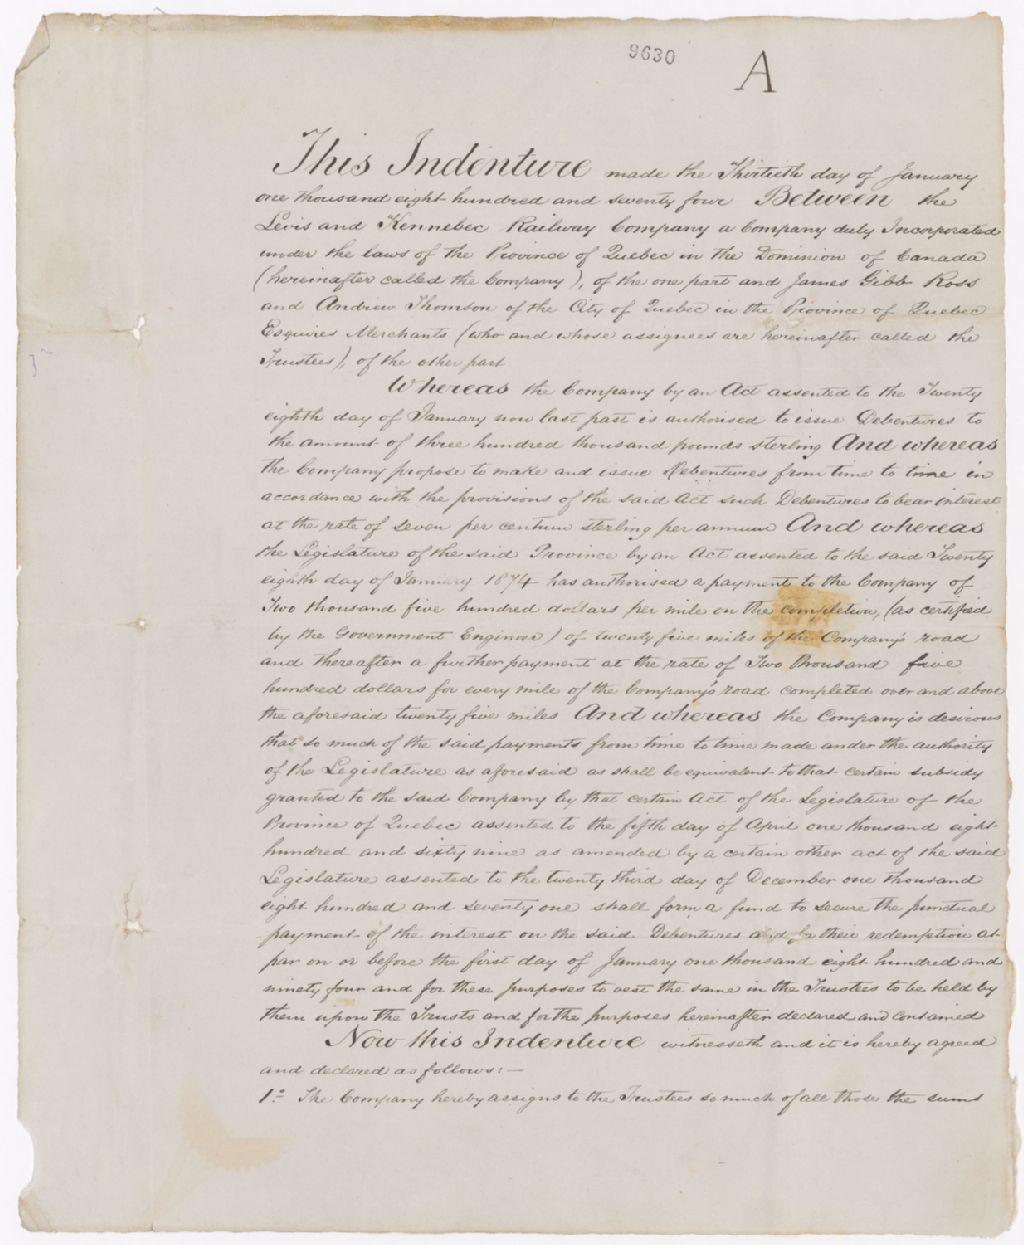 9630
A
This Indenture made the Thirtieth day of January
one thousand eight hundred and seventy four Between the
Levis and Kennebec Railway Company a Company duly Incorporated
under the laws of the Province of Quebec in the Dominion of Canada
(hereinafter called the Company), of the one part and James Gibb Ross
and Andrew Thomson of the City of Quebec in the Province of Quebec
Esquires Merchants (who and whose assignees are hereinafter called the
Trustees), of the other part
Whereas the Company by an Act assented to the Twenty
eighth day of January now last past is authorised to issue Debentures to
the amount of three hundred thousand pounds sterling And whereas
the Company propose to make and issue Debentures from time to time in
accordance with the provisions of the said Act such Debentures to bear interest
at the rate of seven per centum sterling per annum And whereas
the Legislature of the said Province by an Act assented to the said Twenty
eighth day of January 1874 has authorised a payment to the Company of
Two thousand five hundred dollars per mile on the completion, (as certified
by the Government Engineer) of twenty five miles of the Company's road
and thereafter a further payment at the rate of Two thousand five
hundred dollars for every mile of the Company's road completed over and above
the aforesaid twenty five miles And whereas the Company is desirous
that so much of the said payments from time to time made under the authority
of the Legislature as aforesaid as shall be equivalent to that certain subsidy
granted to the said Company by that certain Act of the Legislature of the
Province of Quebec assented to the fifth day of April one thousand eight
hundred and sixty nine as amended by a certain other act of the said
Legislature assented to the twenty third day of December one thousand
eight hundred and seventy one shall form a fund to secure the punctual
payment of the interest on the said Debentures and for their redemption at
par on or before the first day of January one thousand eight hundred and
ninety four and for these purposes to vest the same in the Trustees to be held by
them upon the Trusts and for the purposes hereinafter declared and contained
Now this Indenture witnesseth and it is hereby agreed
and declared as follows:—
1º The Company hereby assigns to the Trustees so much of all those the sums